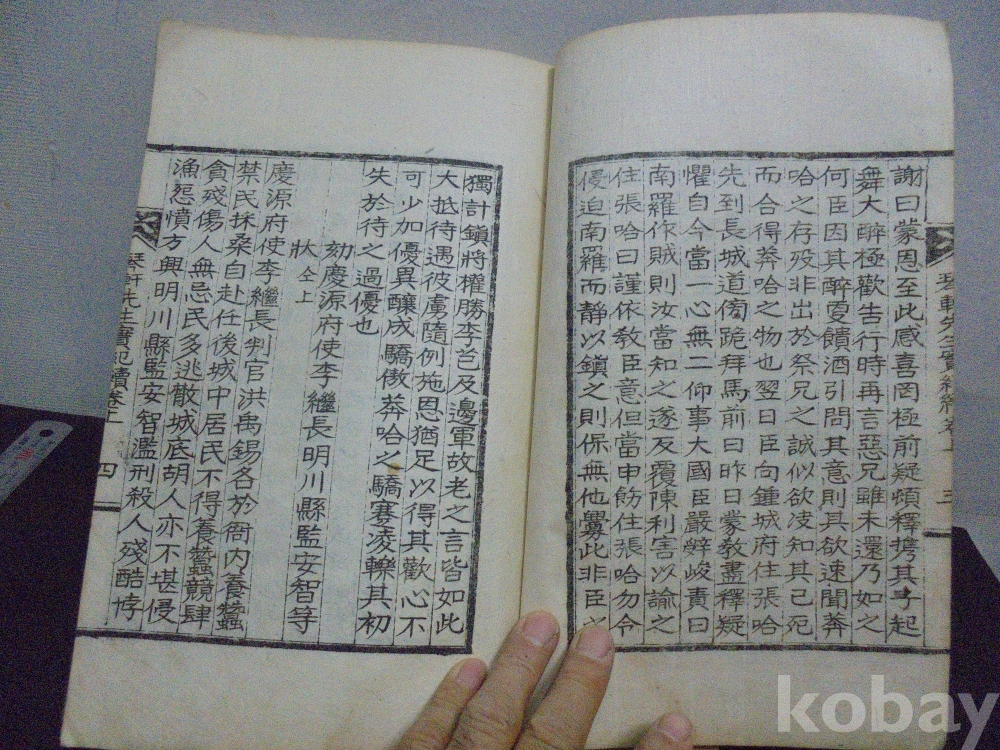 謝曰蒙恩至此感喜罔極前疑頓釋携其子起
舞大醉極歡告行時再言惡兄雖未還乃如之
何臣因其醉憂饋酒引問其意則其欲速聞莽
哈之存歿非出於祭兄之誠似欲凌知其已死
而合得莽哈之物也翌日臣向鍾城府住張哈
先到長城道傍跪拜馬前曰昨日蒙敎盡釋疑
懼自今當一心無二仰事大國臣嚴辭峻責曰
南羅作賊則汝當知之遂反覆陳利害以諭之
住張哈曰謹依敎臣意但當申飭住張哈勿令
侵迫南羅而静以鎭之則保無他釁此非臣之
三
獨計鎭將權勝李芑及邊軍故老之言皆如此
大抵待遇彼虜隨例施恩猶足以得其歡心不
可少加優異釀成驕傲莽哈之驕蹇凌轢其初
失於待之過優也
劾慶源府使李繼長明川縣監安智等
狀仝上
慶源府使李繼長判官洪禹錫各於衙內養蠶
禁民採桑自赴任後城中居民不得養蠶競肆
貪殘傷人無忌民多逃散城底胡人亦不堪侵
漁怨憤方興明川縣監安智濫刑殺人殘酷悖
琴軒先生實紀續卷上
四
kobay